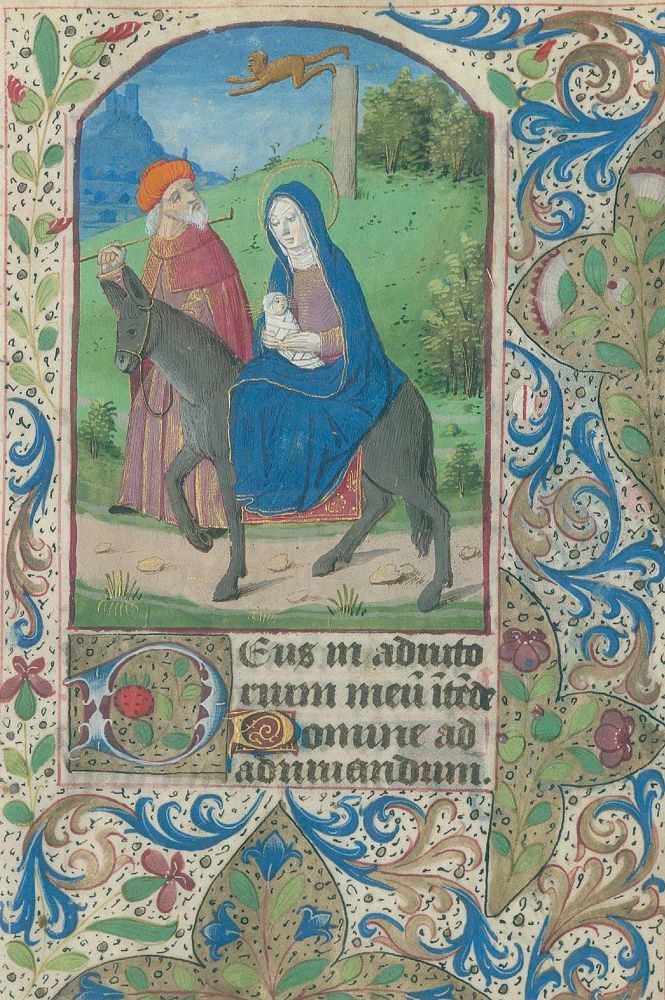 Deus in adiuto
rium meū ītēde
Domine ad
adiuuandum.